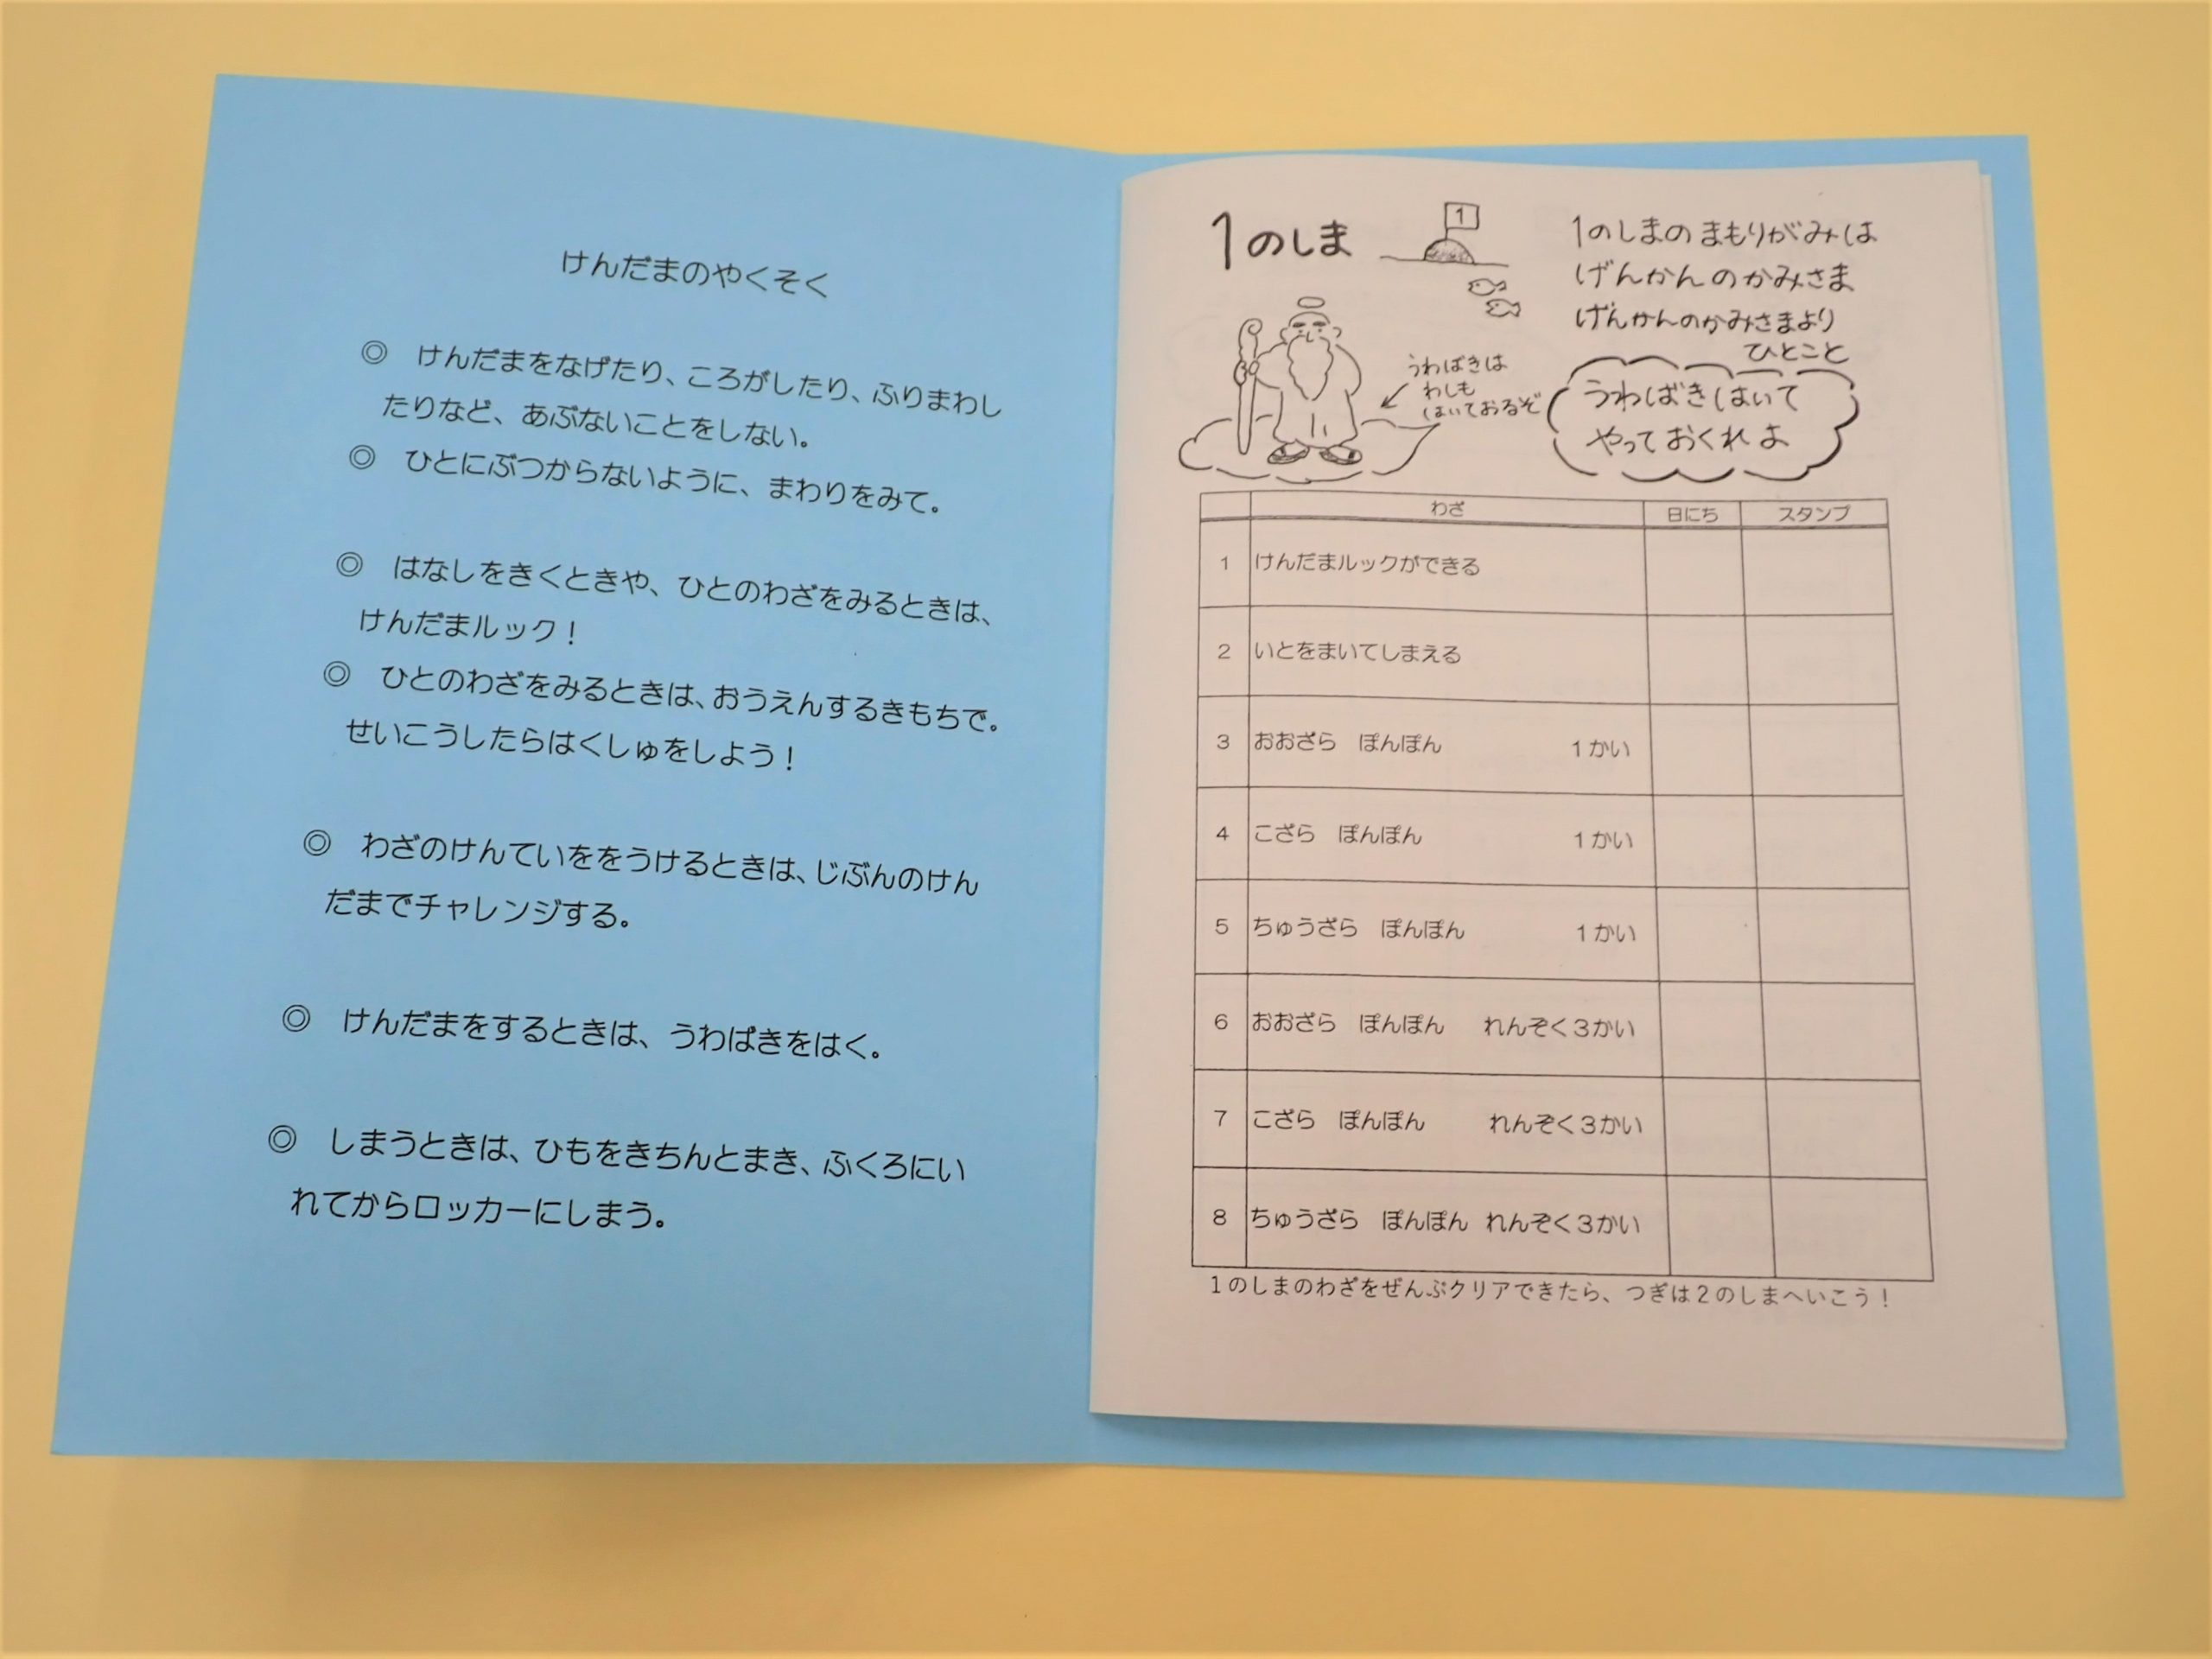 けんだまのやくそく
◎ けんだまをなげたり、ころがしたり、ふりまわし
たりなど、あぶないことをしない。
◎ ひとにぶつからないように、まわりをみて。
◎ はなしをきくときや、ひとのわざをみるときは、
けんだまルック！
◎ ひとのわざをみるときは、おうえんするきもちで。
せいこうしたらはくしゅをしよう！
◎ わざのけんていををうけるときは、じぶんのけん
だまでチャレンジする。
◎ けんだまをするときは、うわばきをはく。
◎ しまうときは、ひもをきちんとまき、ふくろにい
れてからロッカーにしまう。
1のしま
1
1のしまのまもりがみは
げんかんのかみさま
げんかんのかみさまより
ひとこと
うわばきは
わしも
はいておるぞ
うわばきはいて
やっておくれよ
わざ 日にち スタンプ
1 けんだまルックができる
2 いとをまいてしまえる
3 おおざら ぽんぽん 1かい
4 こざら ぽんぽん 1かい
5 ちゅうざら ぽんぽん 1かい
6 おおざら ぽんぽん れんぞく3かい
7 こざら ぽんぽん れんぞく3かい
8 ちゅうざら ぽんぽん れんぞく3かい
1のしまのわざをぜんぶクリアできたら、つぎは2のしまへいこう！